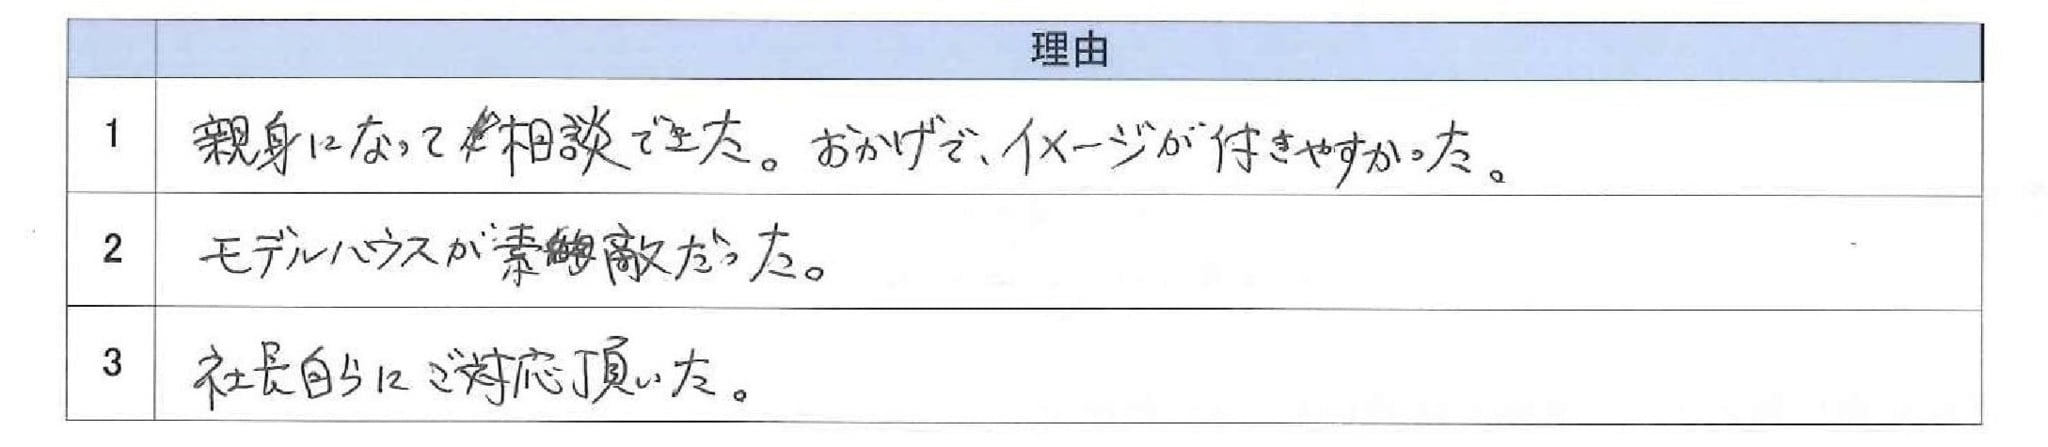 理由
1 親身になって相談できた。おかげで、イメージが付きやすかった。
2 モデルハウスが素敵だった。
3 社長自らにご対応頂いた。